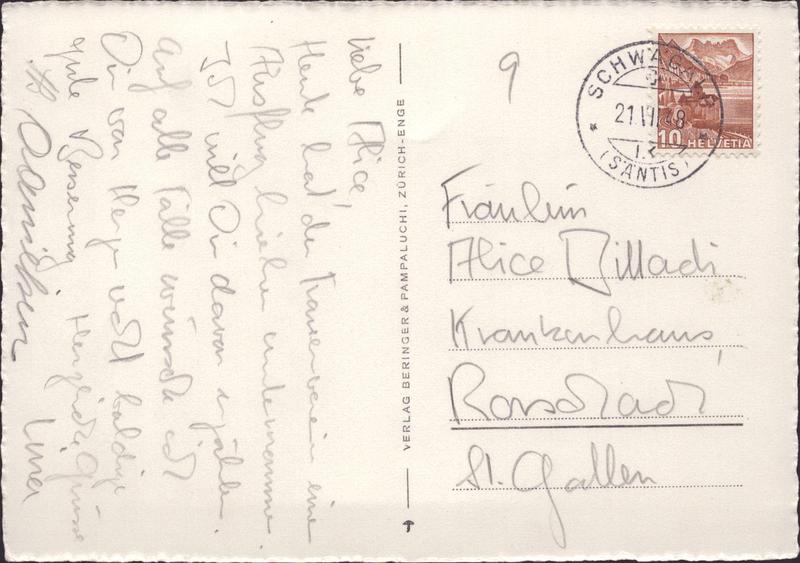 Liebe Alice,
Heute hat der Frauenverein eine
Ausflug hierher unternommen.
Ich will Dir davon erzählen.
Auf alle Fälle wünsche ich
Dir von Herzen recht baldige
gute Besserung Herzliche Grüsse
Lina
VERLAG BERINGER & PAMPALUCHI, ZÜRICH-ENGE
9
SCHWÄGALP
21.VII.48
(SÄNTIS)
10 HELVETIA
Fräulein
Alice
Krankenhaus,
Rorschach
St. Gallen